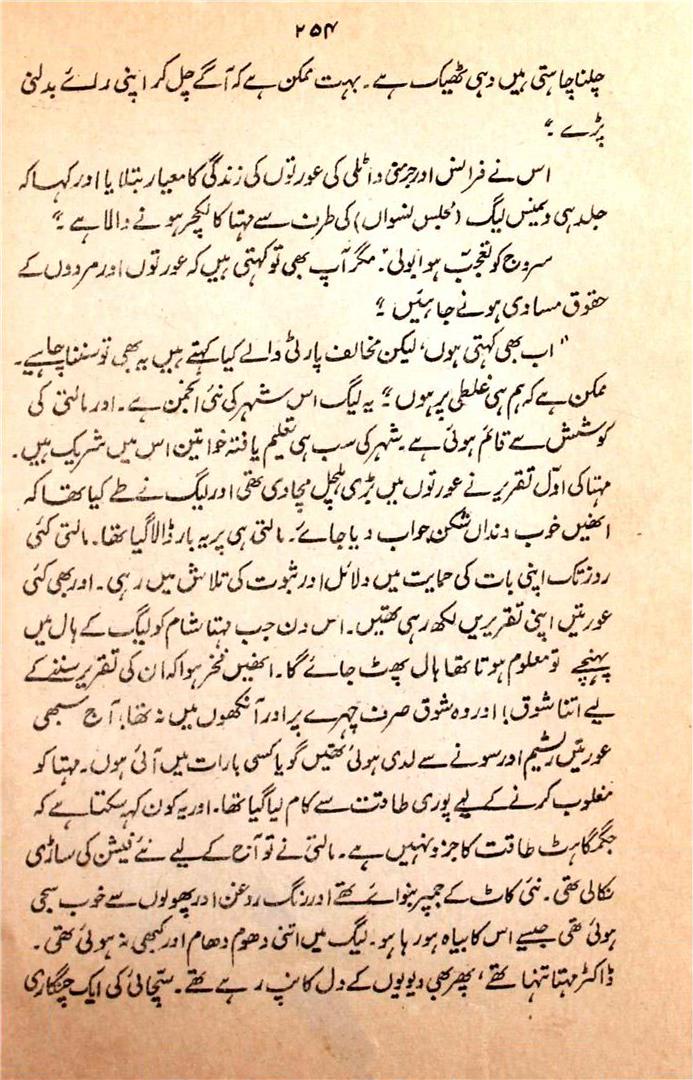 ۲۵۴
چلنا چاہتی ہیں وہی ٹھیک ہے۔ بہت ممکن ہے کہ آگے چل کر اپنی رائے بدلنی
پڑے۔"
اس نے فرانس اور جرمنی و اٹلی کی عورتوں کی زندگی کا معیار بتلایا اور کہا کہ
جلد ہی ویمنس لیگ (مجلس نسواں) کی طرف سے مہتا کا لیکچر ہونے والا ہے۔"
سروج کو تعجب ہوا بولی "مگر آپ بھی تو کہتی ہیں کہ عورتوں اور مردوں کے
حقوق مساوی ہونے چاہئیں۔"
"اب بھی کہتی ہوں، لیکن مخالف پارٹی والے کیا کہتے ہیں یہ بھی تو سننا چاہیے۔
ممکن ہے کہ ہم ہی غلطی پر ہوں۔" یہ لیگ اس شہر کی نئی انجمن ہے۔ اور مالتی کی
کوشش سے قائم ہوئی ہے۔ شہر کی سب ہی تعلیم یافتہ خواتین اس میں شریک ہیں۔
مہتا کی اول تقریر نے عورتوں میں بڑی ہلچل مچا دی تھی اور لیگ نے طے کیا تھا کہ
انھیں خوب دنداں شکن جواب دیا جائے۔ مالتی ہی پر یہ بار ڈالا گیا تھا۔ مالتی کئی
روز تک اپنی بات کی حمایت میں دلائل اور ثبوت کی تلاش میں رہی۔ اور بھی کئی
عورتیں اپنی تقریریں لکھ رہی تھیں۔ اس دن جب مہتا شام کو لیگ کے ہال میں
پہنچے تو معلوم ہوتا تھا ہال پھٹ جائے گا۔ انھیں فخر ہوا کہ ان کی تقریر سننے کے
لیے اتنا شوق! اور وہ شوق صرف چہرے پر اور آنکھوں میں نہ تھا؛ آج سبھی
عورتیں ریشم اور سونے سے لدی ہوئی تھیں گویا کسی بارات میں آئی ہوں۔ مہتا کو
مغلوب کرنے کے لیے پوری طاقت سے کام لیا گیا تھا۔ اور یہ کون کہہ سکتا ہے کہ
جگمگاہٹ طاقت کا جزو نہیں ہے۔ مالتی نے تو آج کے لیے نئے فیشن کی ساڑی
نکالی تھی۔ نئی کاٹ کے جمپر بنوائے تھے اور رنگ روغن اور پھولوں سے خوب سجی
ہوئی تھی جیسے اس کا بیاہ ہو رہا ہو۔ لیگ میں اتنی دھوم دھام اور کبھی نہ ہوئی تھی۔
ڈاکٹر مہتا تنہا تھے، پھر بھی دیویوں کے دل کانپ رہے تھے۔ سچائی کی ایک چنگاری